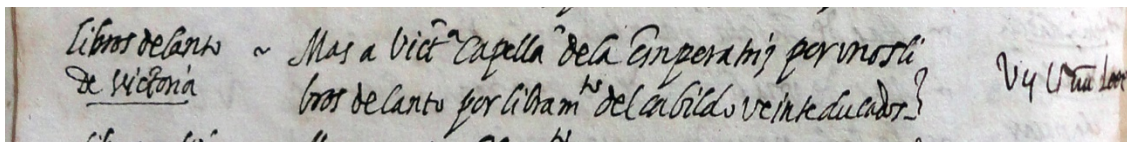 libros de canto
de victoria
~ Mas a Victª Capellā de la Emperatriz por unos li
bros de canto por libramtº del cabildo veinte ducados
Vij U